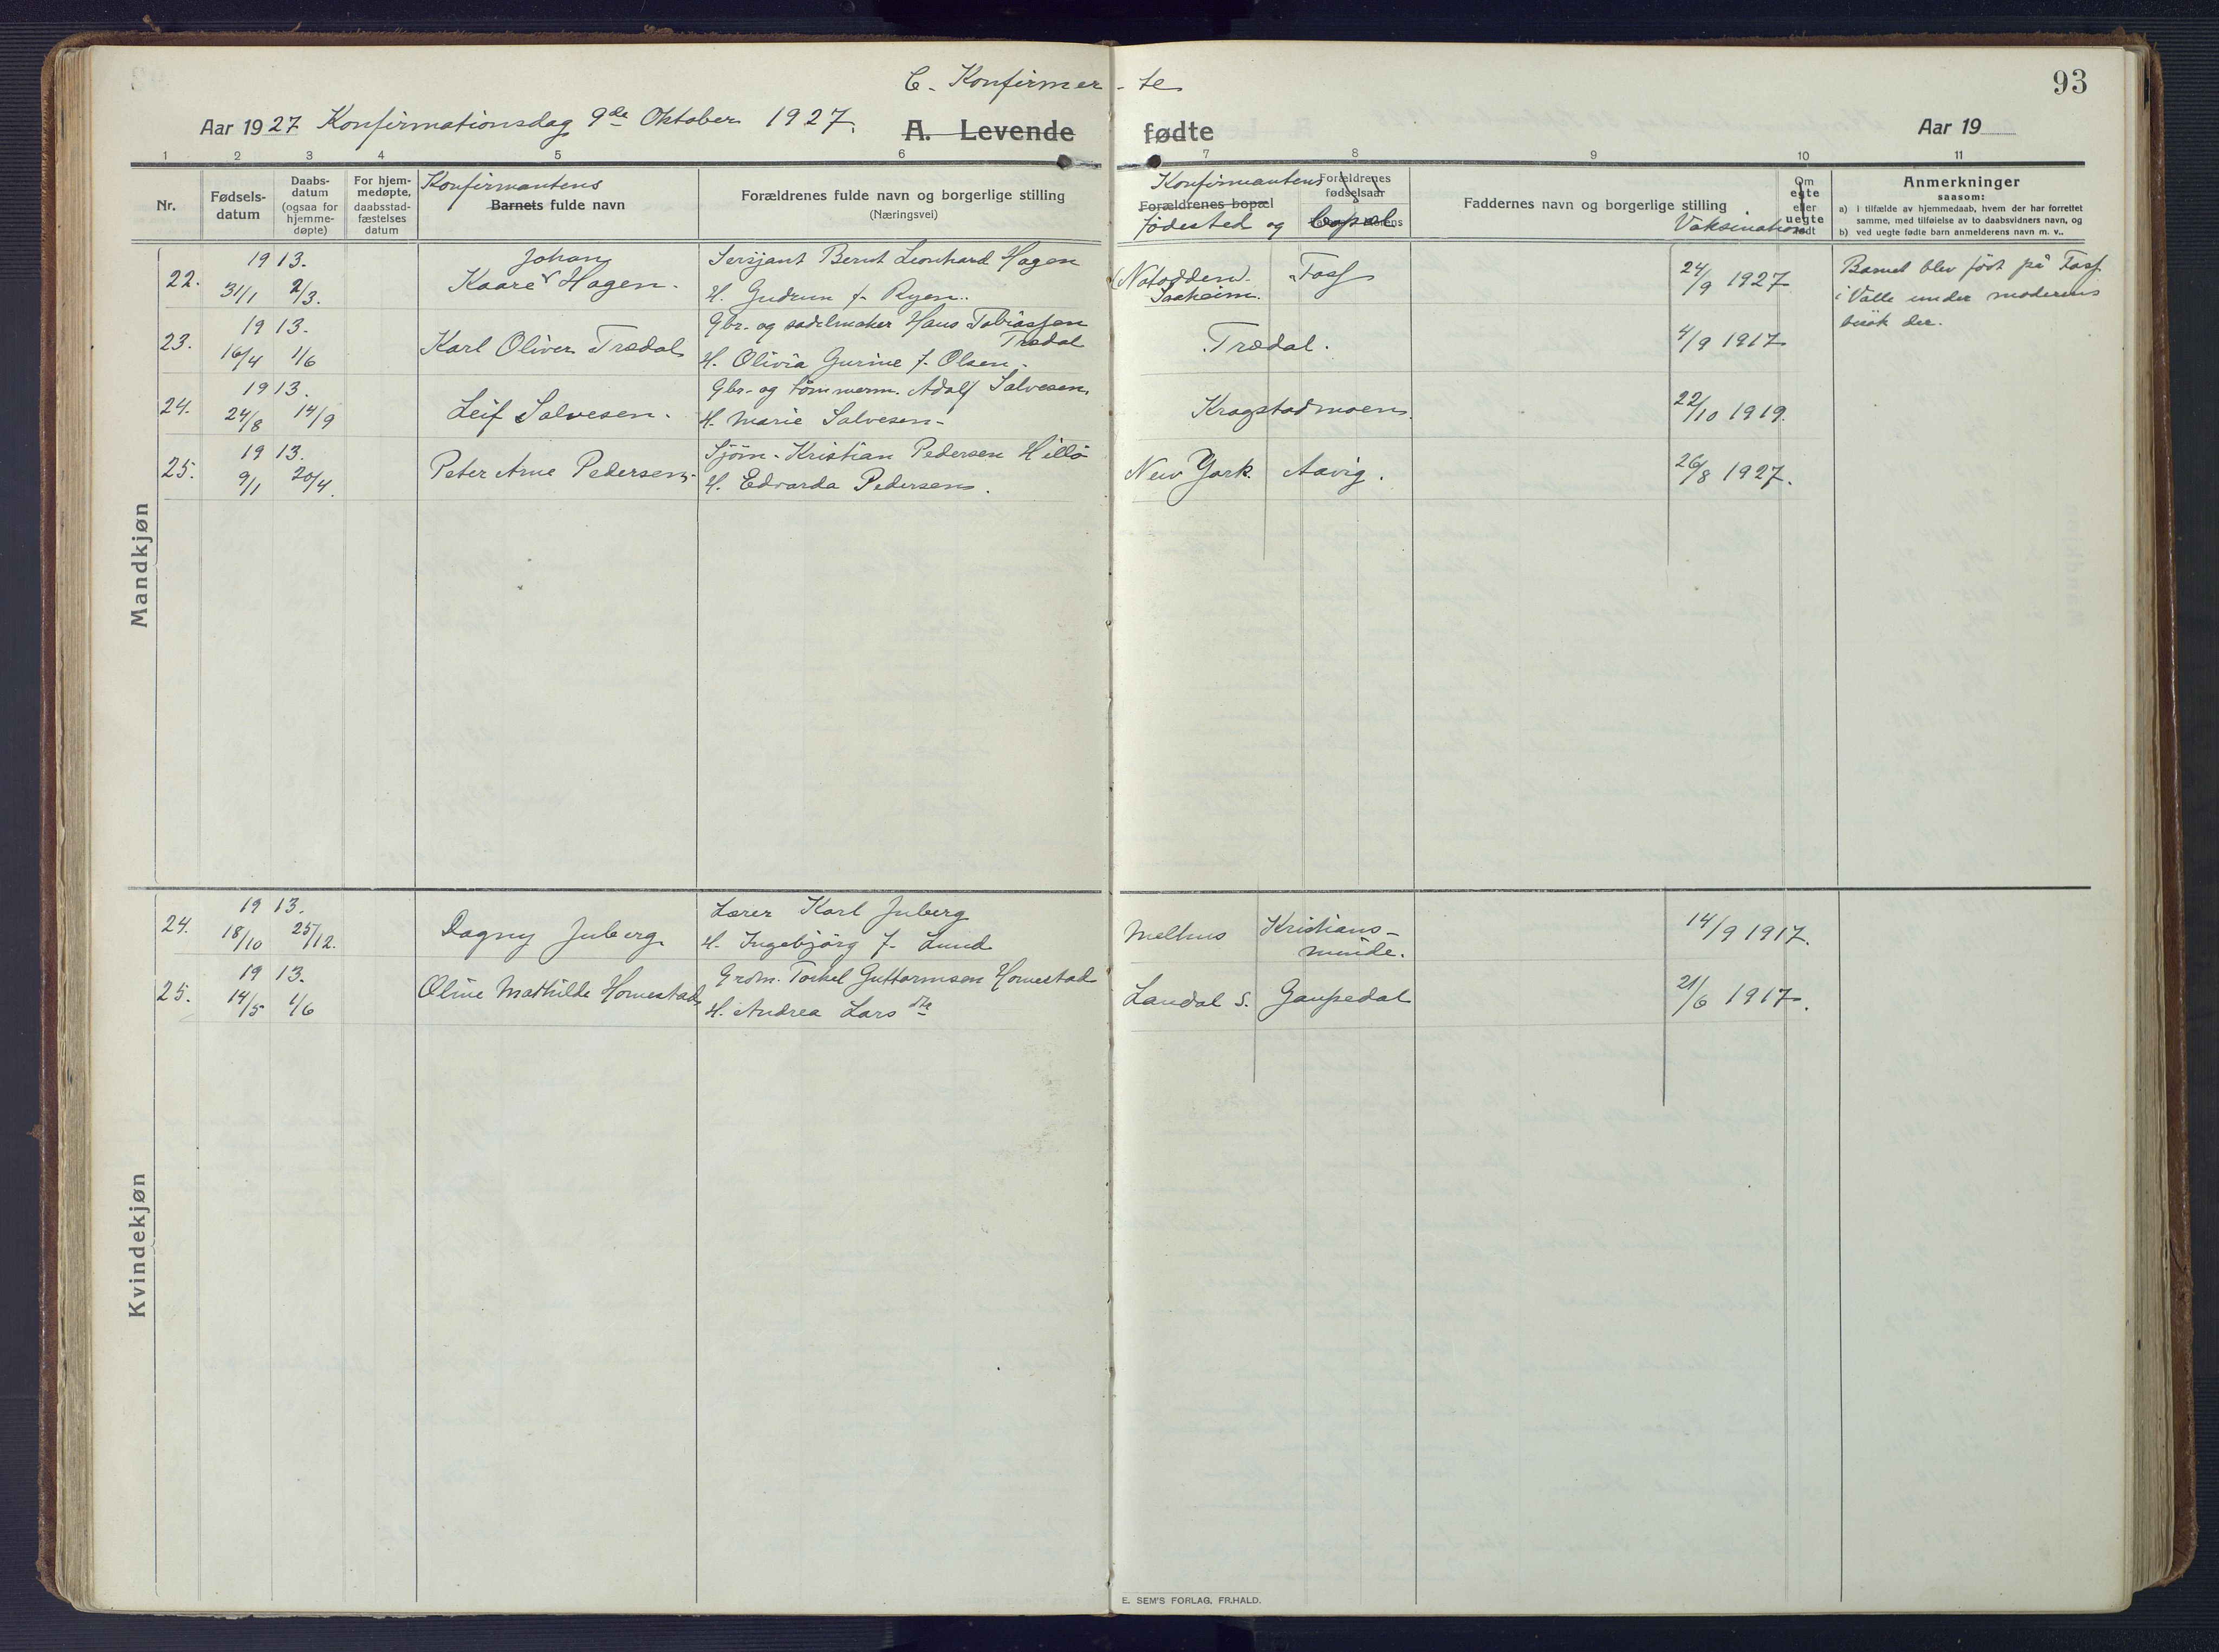 C. Konfirmer-te
93
Aar 1927 Konfirmationsdag 9de Oktober 1927.
A. Levende fødte
Aar 19
1 2 3 4 5 6 7 8 9 10 11
Nr.
Fødsels-
datum
Daabs-
datum
(ogsaa for
hjemme-
døpte)
For hjem-
medøpte,
daabsstad-
fæstelses
datum
Konfirmantens
Barnets fulde navn
Forældrenes fulde navn og borgerlige stilling
(Næringsvei)
Konfirmantens
Forældrenes bopæl
Fødested og bopæl
Forældrenes
fødselsaar
Faddernes navn og borgerlige stilling
Vaksination
Om
egte
eller
uegte
født
Anmerkninger
saasom:
a) i tilfælde av hjemmedaab, hvem der har forrettet
samme, med tilføielse av to daabsvidners navn, og
b) ved uegte fødte barn anmelderens navn m. v..
Mandkjøn
1913.
22. 31/1 2/3.
Johan
Kaare Hagen.
Sersjant Bernt Leonhard Hagen
H. Gudrun f. Ryen..
(Notodden).
Saaheim.
Foss
24/9 1927
Barnet blev født på Foss
i Valle under moderens
besøk der.
1913.
23. 16/4 1/6
Karl Oliver Trædal
Gbr. og sadelmaker Hans Tobiassen
Trædal
H. Olivia Gurine f. Olsen.
Trædal.
4/9 1917
1913.
24. 24/8 14/9
Leif Salvesen.
Gbr. og tømmerm. Adolf Salvesen.
H. Marie Salvesen.
Krogstadmoen.
22/10 1919.
1913.
25. 9/1 20/4.
Peter Arne Pedersen.
Sjøm. Kristian Pedersen Hillö
H. Edvarda Pedersen.
New York. Aavig.
26/8 1927.
Kvindekjøn
1913.
24. 18/10 25/12.
Dagny Juberg
Lærer Karl Juberg
H. Ingebjørg f. Lund
Melhus
Kristians-
minde.
14/9 1917.
1913.
25. 14/5 1/6
Oline Mathilde Homestad
Grdm. Torkel Guttormsen Homestad
H. Andrea Larsdtr
Laudal s. Gaupedal
21/6 1917.
E. SEM'S FORLAG, FR.HALD.